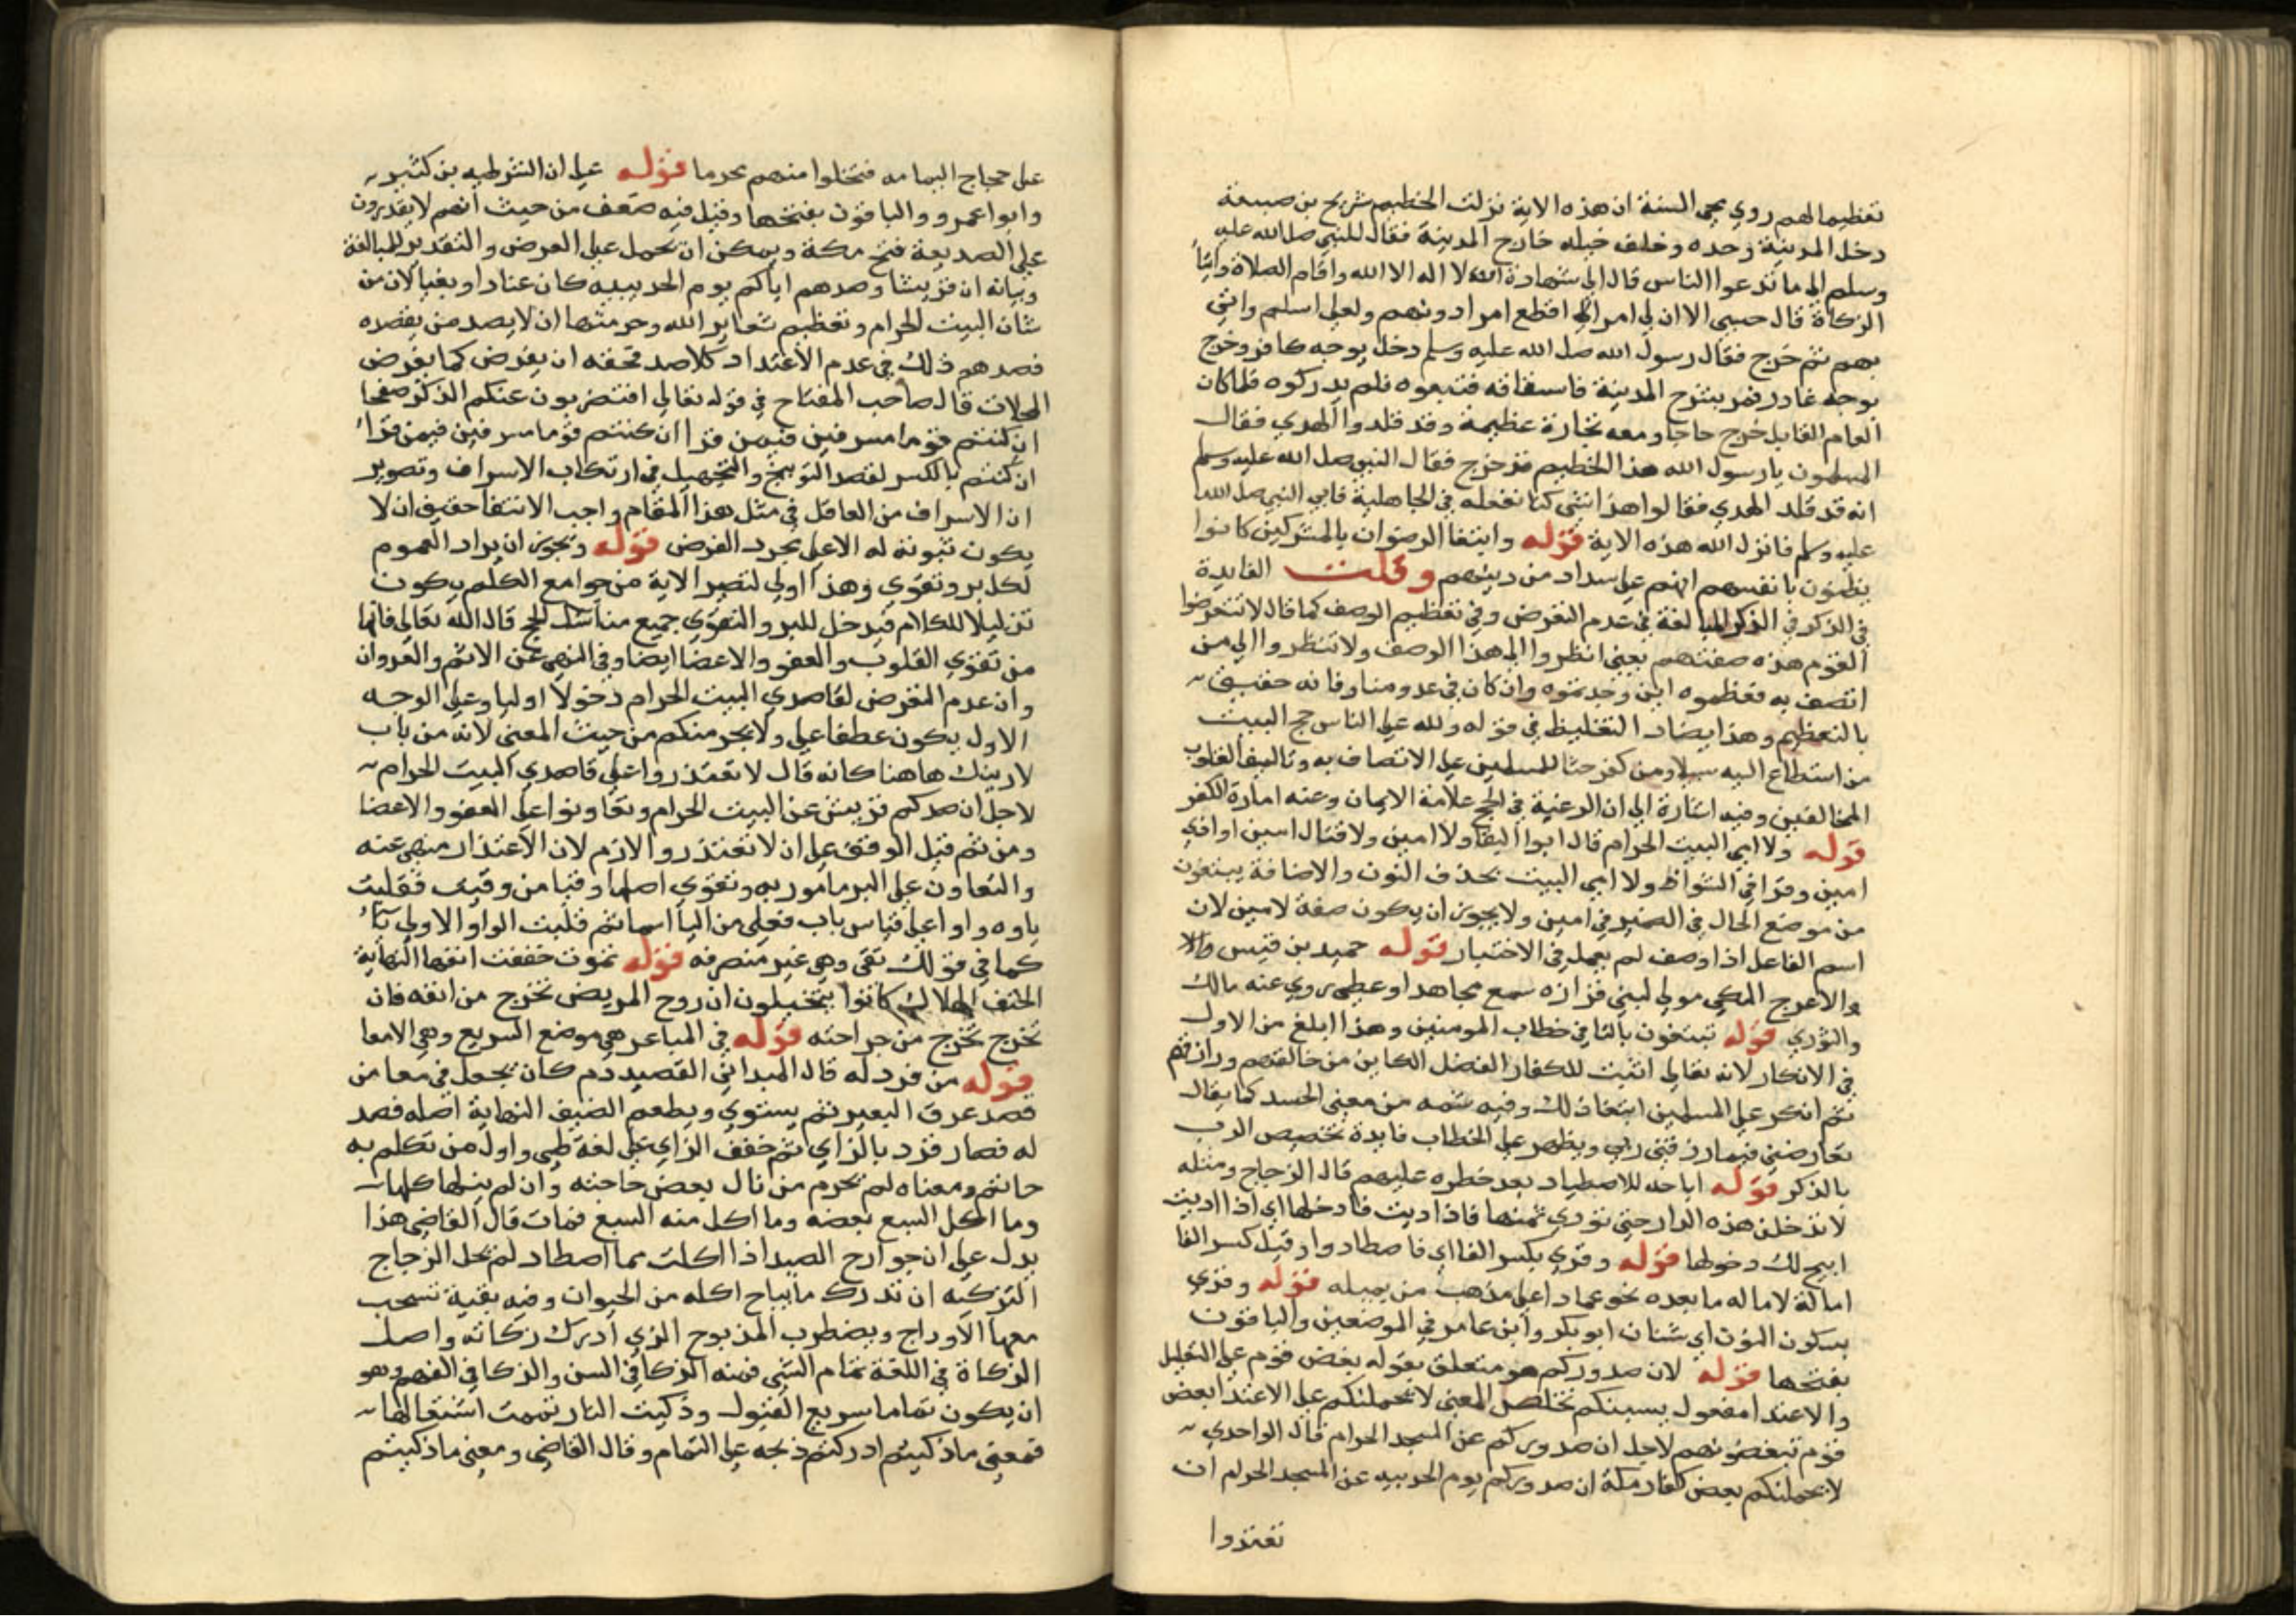 تعظيما لهم روي محي السنة ان هذه الاية نزلت الحظيم شريح بن صبيعة
دخل المدينة وحده وخلف خيله خارج المدينة فقال للنبي صلى الله عليه
وسلم الى ما تدعوا الناس قال الى شهادة ان لا اله الا الله واقام الصلاة وايتا
الزكاة قال حسبي الا ان لي امرا لا اقطع امرا دونهم ولعلي اسلم واتي
بهم ثم خرج فقال رسول الله صلى الله عليه وسلم دخل بوجه كافر وخرج
بوجه غادر فمر بسرح المدينة فاستاقه فتبعوه فلم يدركوه فلما كان
العام القابل خرج حاجا ومعه تجارة عظيمة وقد قلدوا الهدي فقال
المسلمون يا رسول الله هذا الحظيم قد خرج فقال النبي صلى الله عليه وسلم
انه قد قلد الهدي فقالوا هذا شي كنا نفعله في الجاهلية فابى النبي صلى الله
عليه وسلم فانزل الله هذه الاية قوله وابتغا الرضوان بالمشركين كانوا
يظنون بانفسهم انهم على سداد من دينهم وقلت الفايدة
في الذكر في الذكر المبالغة في عدم التعرض وفي تعظيم الوصف كما قال لا تتعرضوا
القوم هذه صفتهم يعني انظروا الى هذا الوصف ولا تنظروا الى من
اتصف به فعظموه اين وجدتموه وان كان في عدو مناوفانه حقيق
بالتعظيم وهذا يضاد التغليظ في قوله ولله على الناس حج البيت
من استطاع اليه سبيلا ومن كفر حثا للمسلمين على الاتصاف به وتاليفا لقلوب
المخالفين وفيه اشارة الى ان الرغبة في الحج علامة الايمان وعنه امارة الكفر
قوله ولا امي البيت الحرام قال ابوا البقا ولا امين ولا قتال امين او اذي
امين وقرا في الشواظ ولا امي البيت بحذف النون والاضافة يبتغون
من موضع الحال في الضمير في امين ولا يجوز ان يكون صفة لامين لان
اسم الفاعل اذا وصف لم يعمل في الاختيار قوله حميد بن قيس
والاعرج المكي مولى لبني فزازه سمع مجاهدا وعطي روي عنه مالك
والثوري قوله تبتغون بالتا في خطاب المومنين وهذا ابلغ من الاول
في الانكار لانه تعالى اثبت للكفار الفضل الكاين من خالقهم ورازقهم
ثم انكر على المسلمين ابتغا ذلك وفيه شمه من معنى الحسد كما يقال
تعارضني فيما رزقني ربي ويظهر على الخطاب فايدة تخصيص الرب
بالذكر قوله اباحه للاصطياد بعد خطره عليهم قال الزجاج ومثله
لا تدخلن هذه الدار حتى تودي ثمنها فاذا اديت فادخلها اي اذا اديت
ابيح لك دخولها قوله وقري بكسر الفا اي فاصطادوا وقيل كسر الفا
امالة لاماله ما بعده نحو عمادا على مذهب من يميله قوله وقري
بسكون النون اي شنان ابو بكر وابن عامر في الموضعين والباقون
بفتحها قوله لان صدوركم هو متعلق بقوله بغض قوم على التعليل
والاعتدا مفعول يسبنكم تخلص المعنى لا يحملنكم على الاعتدا بعض
قوم تبغضونهم لاجل ان صدوركم عن المسجد الحرام قال الواحدي
لا يحملنكم بعض كفار مكة ان صدوركم يوم الحديبيه عن المسجد الحرام ان
تعتدوا
على حجاج اليمامه فتستحلوا منهم محرما قوله على ان الشرطيه بن كثير
وابوا عمرو والباقون بفتحها وقيل فيه ضعف من حيث انهم لا يقدرون
على الصد بعد فتح مكة ويمكن ان يحمل على الفرض والتقدير للمبالغة
وبيانه ان قريشا وصدهم اياكم يوم الحديبيه كان عنادا وبغيا لان من
شان البيت الحرام وتعظيم شعاير الله وحرمتها ان لا يصد من يقصده
فصدهم ذلك في عدم الاعتداد كلا صد فحقه ان يفرض كما يفرض
المحلات قال صاحب المفتاح في قوله تعالى افنضربون عنكم الذكر صفحا
ان كنتم قوما مسرفين فيمن قرا ان كنتم قوما مسرفين فيمن قرا
ان كنتم بالكسر لقصد التوبيخ والتجهيل في ارتكاب الاسراف وتصوير
ان الاسراف من العاقل في مثل هذا المقام واجب الانتفا حقيق ان لا
يكون ثبوته له الا على مجرد الفرض قوله ويجوز ان يراد العموم
لكل بر وتقوي وهذا اولى لتصير الاية من جوامع الكلم يكون
تذليلا للكلام فيدخل للبر والتقوي جميع مناسك الحج قال الله تعالى فانها
من تقوي القلوب والعفو والاغضا ايضا وفي النهي عن الاثم والعدوان
وان عدم التعرض لقاصدي البيت الحرام دخولا اوليا وعلى الوجه
الاول يكون عطفا على ولا يجرمنكم من حيث المعنى لانه من باب
لا رينك هاهنا كانه قال لا تعتدروا على قاصدي البيت الحرام
لاجل ان صدكم قريش عن البيت الحرام وتعاونوا على العفو والاعضا
ومن ثم قيل الوقف على ان لا تعتدروا لازم لان الاعتدار منهي عنه
والتعاون على البر مامور به وتقوي اصلها وقيا من وقيت فقلبت
ياوه واوا على قياس باب فعلى من اليا اسما ثم قلبت الواو الاولى تا
كما في قولك تقي وهي غير منصرفه قوله تموت خففت انفها النهاية
الحتف الهلاك كانوا يتخيلون ان روح المريض تخرج من انفه فان
تخرج تخرج من جراحته قوله في المباعر هي موضع السريع وهي الامعا
قوله من فزد له قال الميداني القصيد دم كان يجعل في معا من
فصد عرق البعير ثم يستوي ويطعم الضيف النهاية اصله فصد
له فصار فزد بالزاي ثم خفف الزاي على لغة طي واول من تكلم به
حاتم ومعناه لم يحرم من نال بعض حاجته وان لم ينلها كلها
وما اكل السبع بعضه وما اكل منه السبع فمات قال القاضي هذا
يدل على ان جوارح الصيد اذا اكلت مما اصطاد لم تحل الزجاج
التزكيه ان تدرك ما يباح اكله من الحيوان وفيه بقية تسحب
معها الاوداج ويضطرب المذبوح الذي ادرك زكاته واصل
الزكاة في اللغة تمام الشي فمنه الذكا في السن والذكا في الفهم وهو
ان يكون تماما سريع القبول وذكيت النار تممت اشتعالها
فمعنى ما ذكيتم ادركتم ذبحه على التمام وقال القاضي ومعنى ما ذكيتم